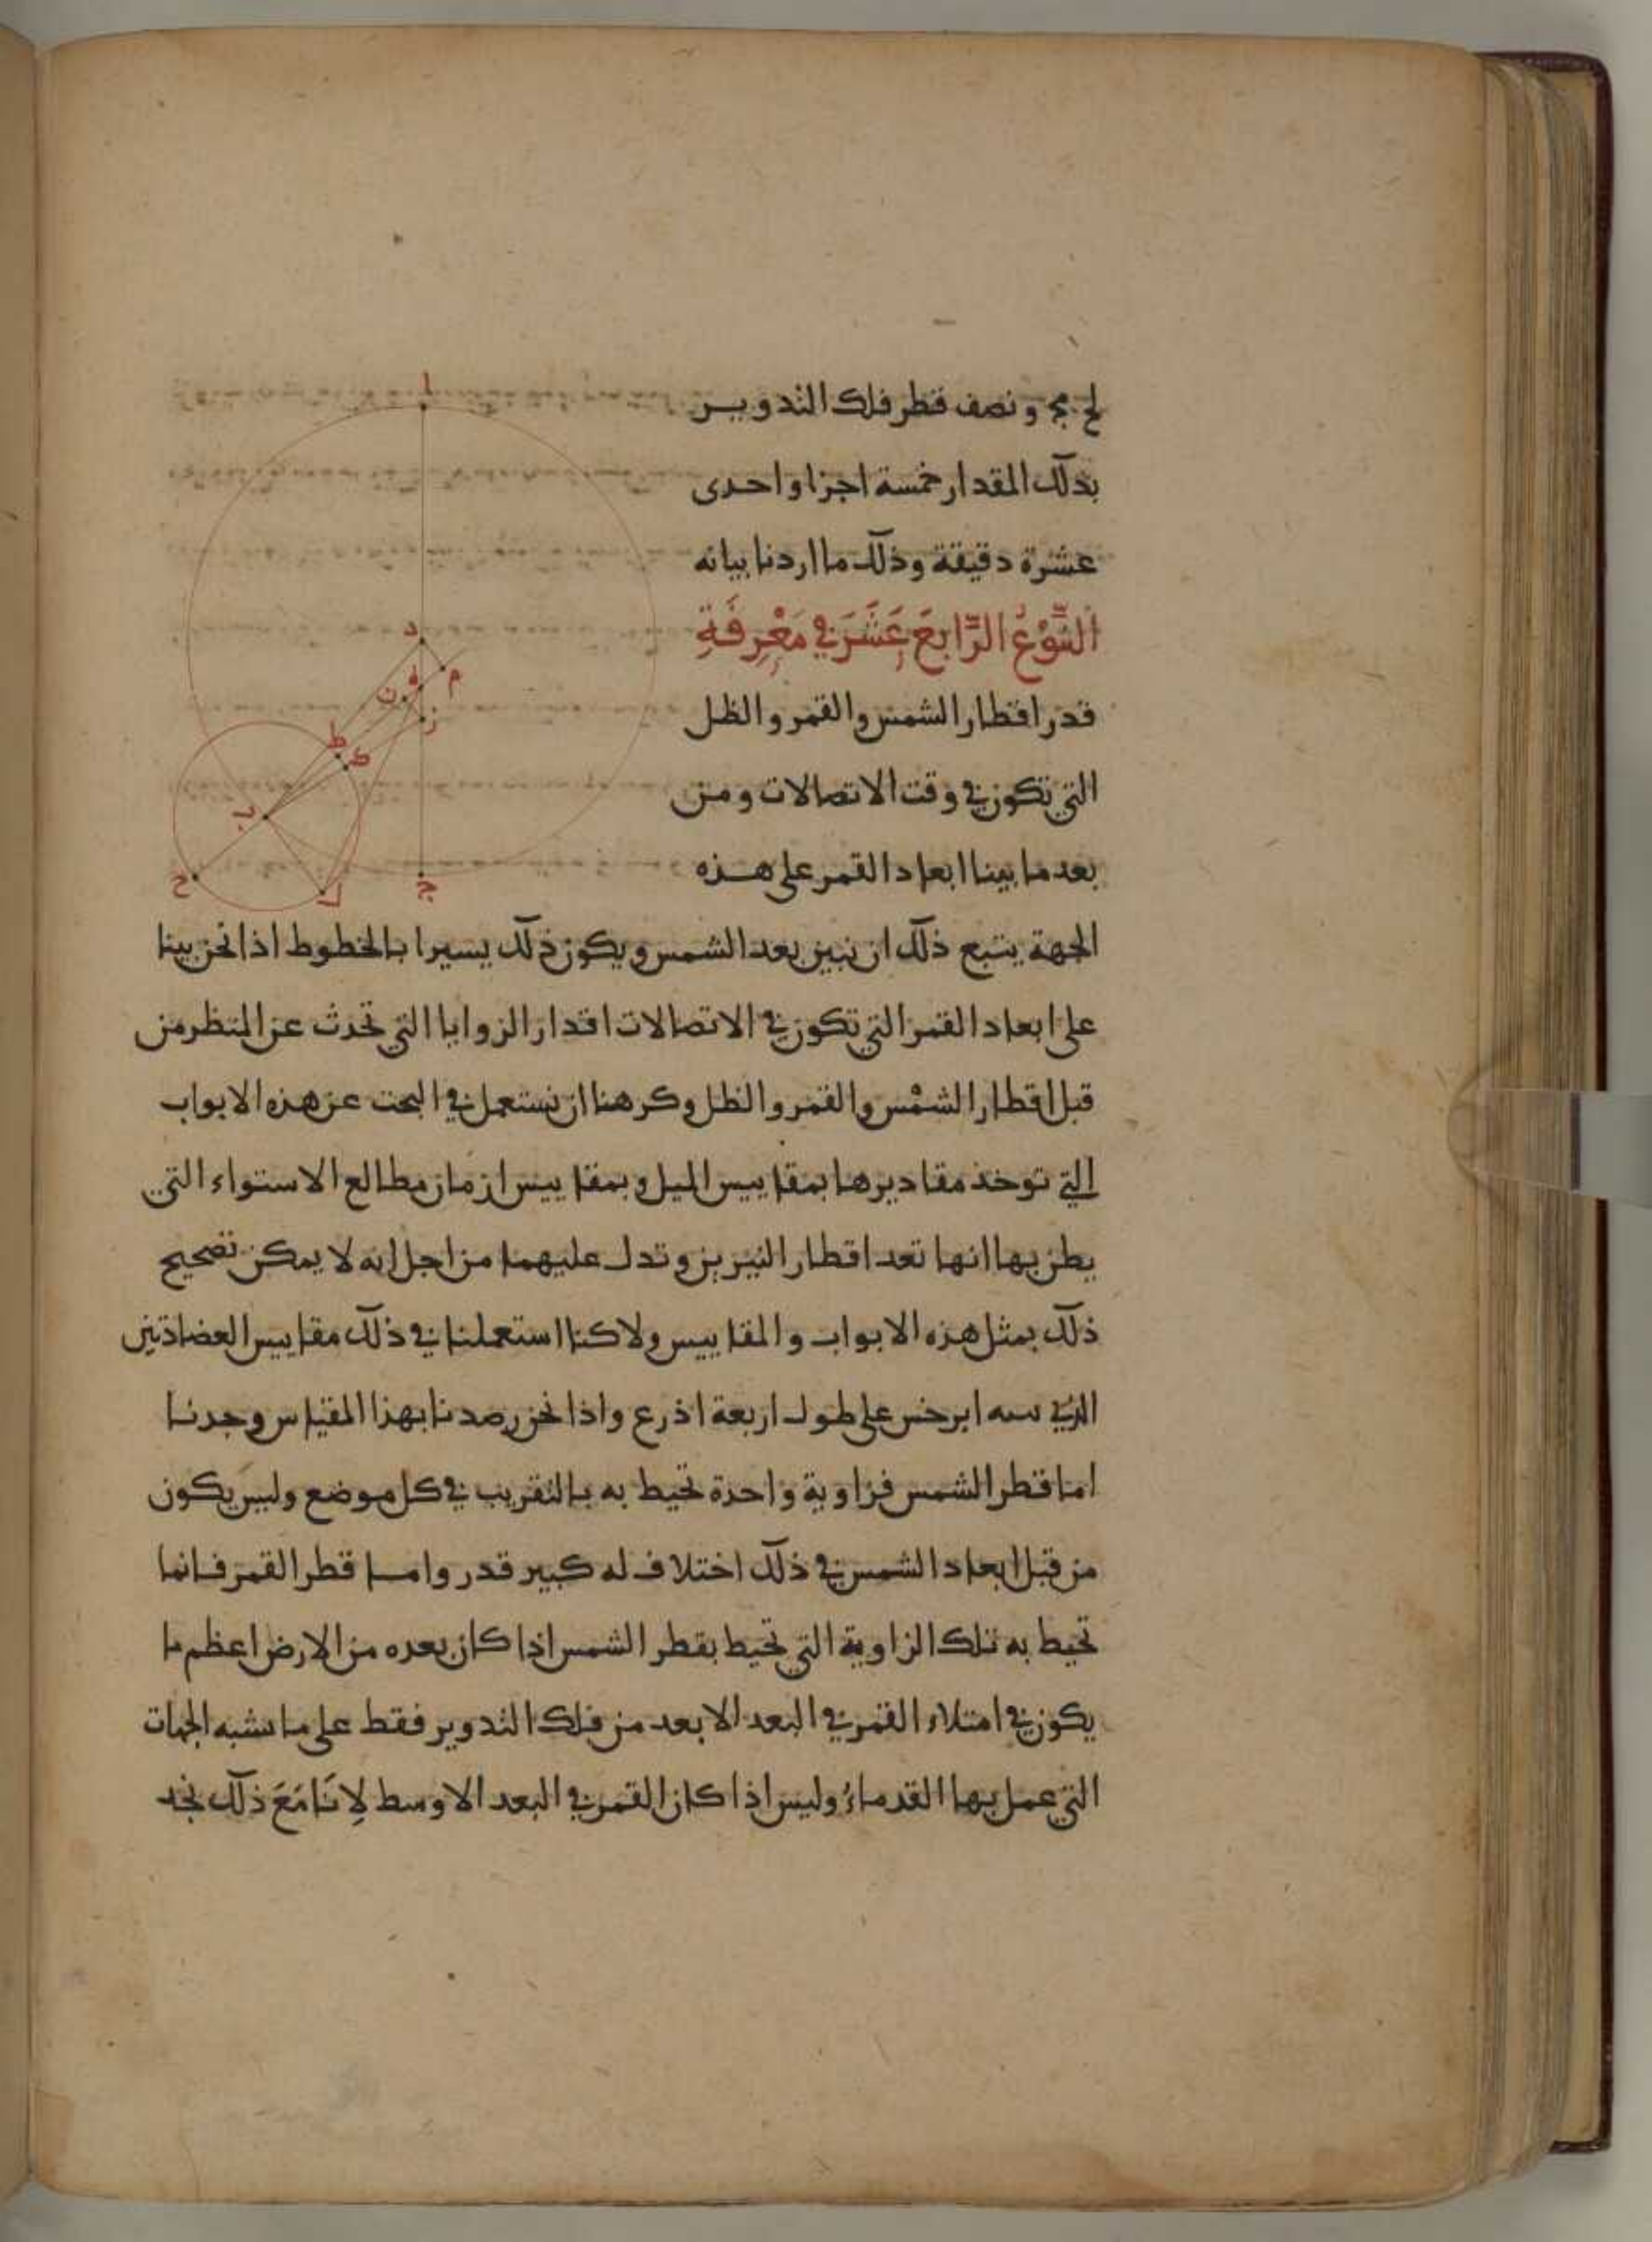 لح مج ونصف قطر فلك التدويــر
بذلك المقدار خمسة اجزا واحدى
عشرة دقيقة وذلك ما اردنا بيانه
النَّوْعُ الرَّابعَ عَشَرَ في مَعْرِفَةِ
قدر اقطار الشمس والقمر والظل
التي تكون في وقت الاتصالات ومن
بعد ما بينا ابعاد القمر على هــذه
الجهة يتبع ذلك ان نبين بعد الشمس ويكون ذلك يسيرا بالخطوط اذا نحن بينا
على ابعاد القمر التي تكون في الاتصالات اقدار الزوايا التي تحدث عن المنظر من
قبل اقطار الشمس والقمر والظل وكرهنا ان نستعمل في البحث عن هذه الابواب
التي توخذ مقاديرها بمقاييس الميل وبمقاييس ازمان مطالع الاستواء التي
يظن بها انها تعد اقطار النيرين وتدل عليهما من اجل انه لا يمكن تصحيح
ذلك بمثل هذه الابواب والمقاييس ولاكنا استعملنا في ذلك مقاييس العضادتين
الذي ابرخس على طول اربعة اذرع واذا نحن رصدنا بهذا المقياس وجدنا
اما قطر الشمس فزاوية واحدة تحيط به بالتقريب في كل موضع وليس يكون
من قبل ابعاد الشمس في ذلك اختلاف له كبير قدر وامــا قطر القمر فانما
تحيط به تلك الزاوية التي تحيط بقطر الشمس اذا كان بعده من الارض اعظم ما
يكون في امتلاء القمر في البعد الابعد من فلك التدوير فقط على ما تشبه الجهات
التي عمل بها القدماءُ وليس اذا كان القمر في البعد الاوسط لِانَا مَعَ ذلك نجد
ا
د
م
ه
ن
ز
ط
ك
ب
ح
ل
ج